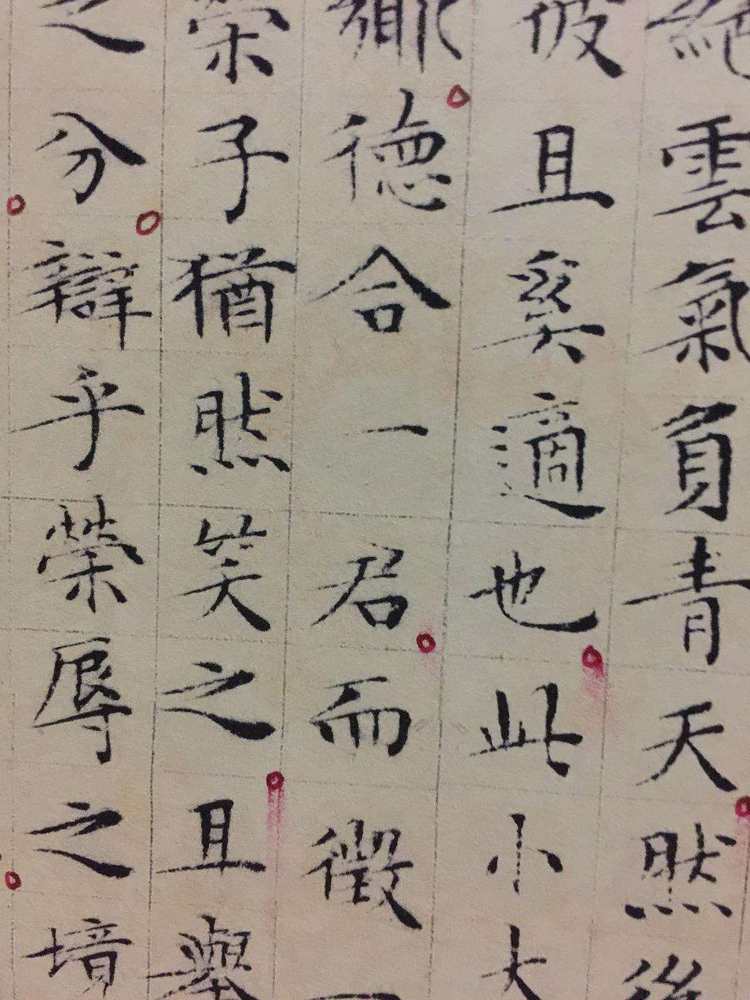 絕雲氣負青天然後
彼且奚適也此小大
鄉德合一君而徵一
榮子猶然笑之且舉
之分辯乎榮辱之境